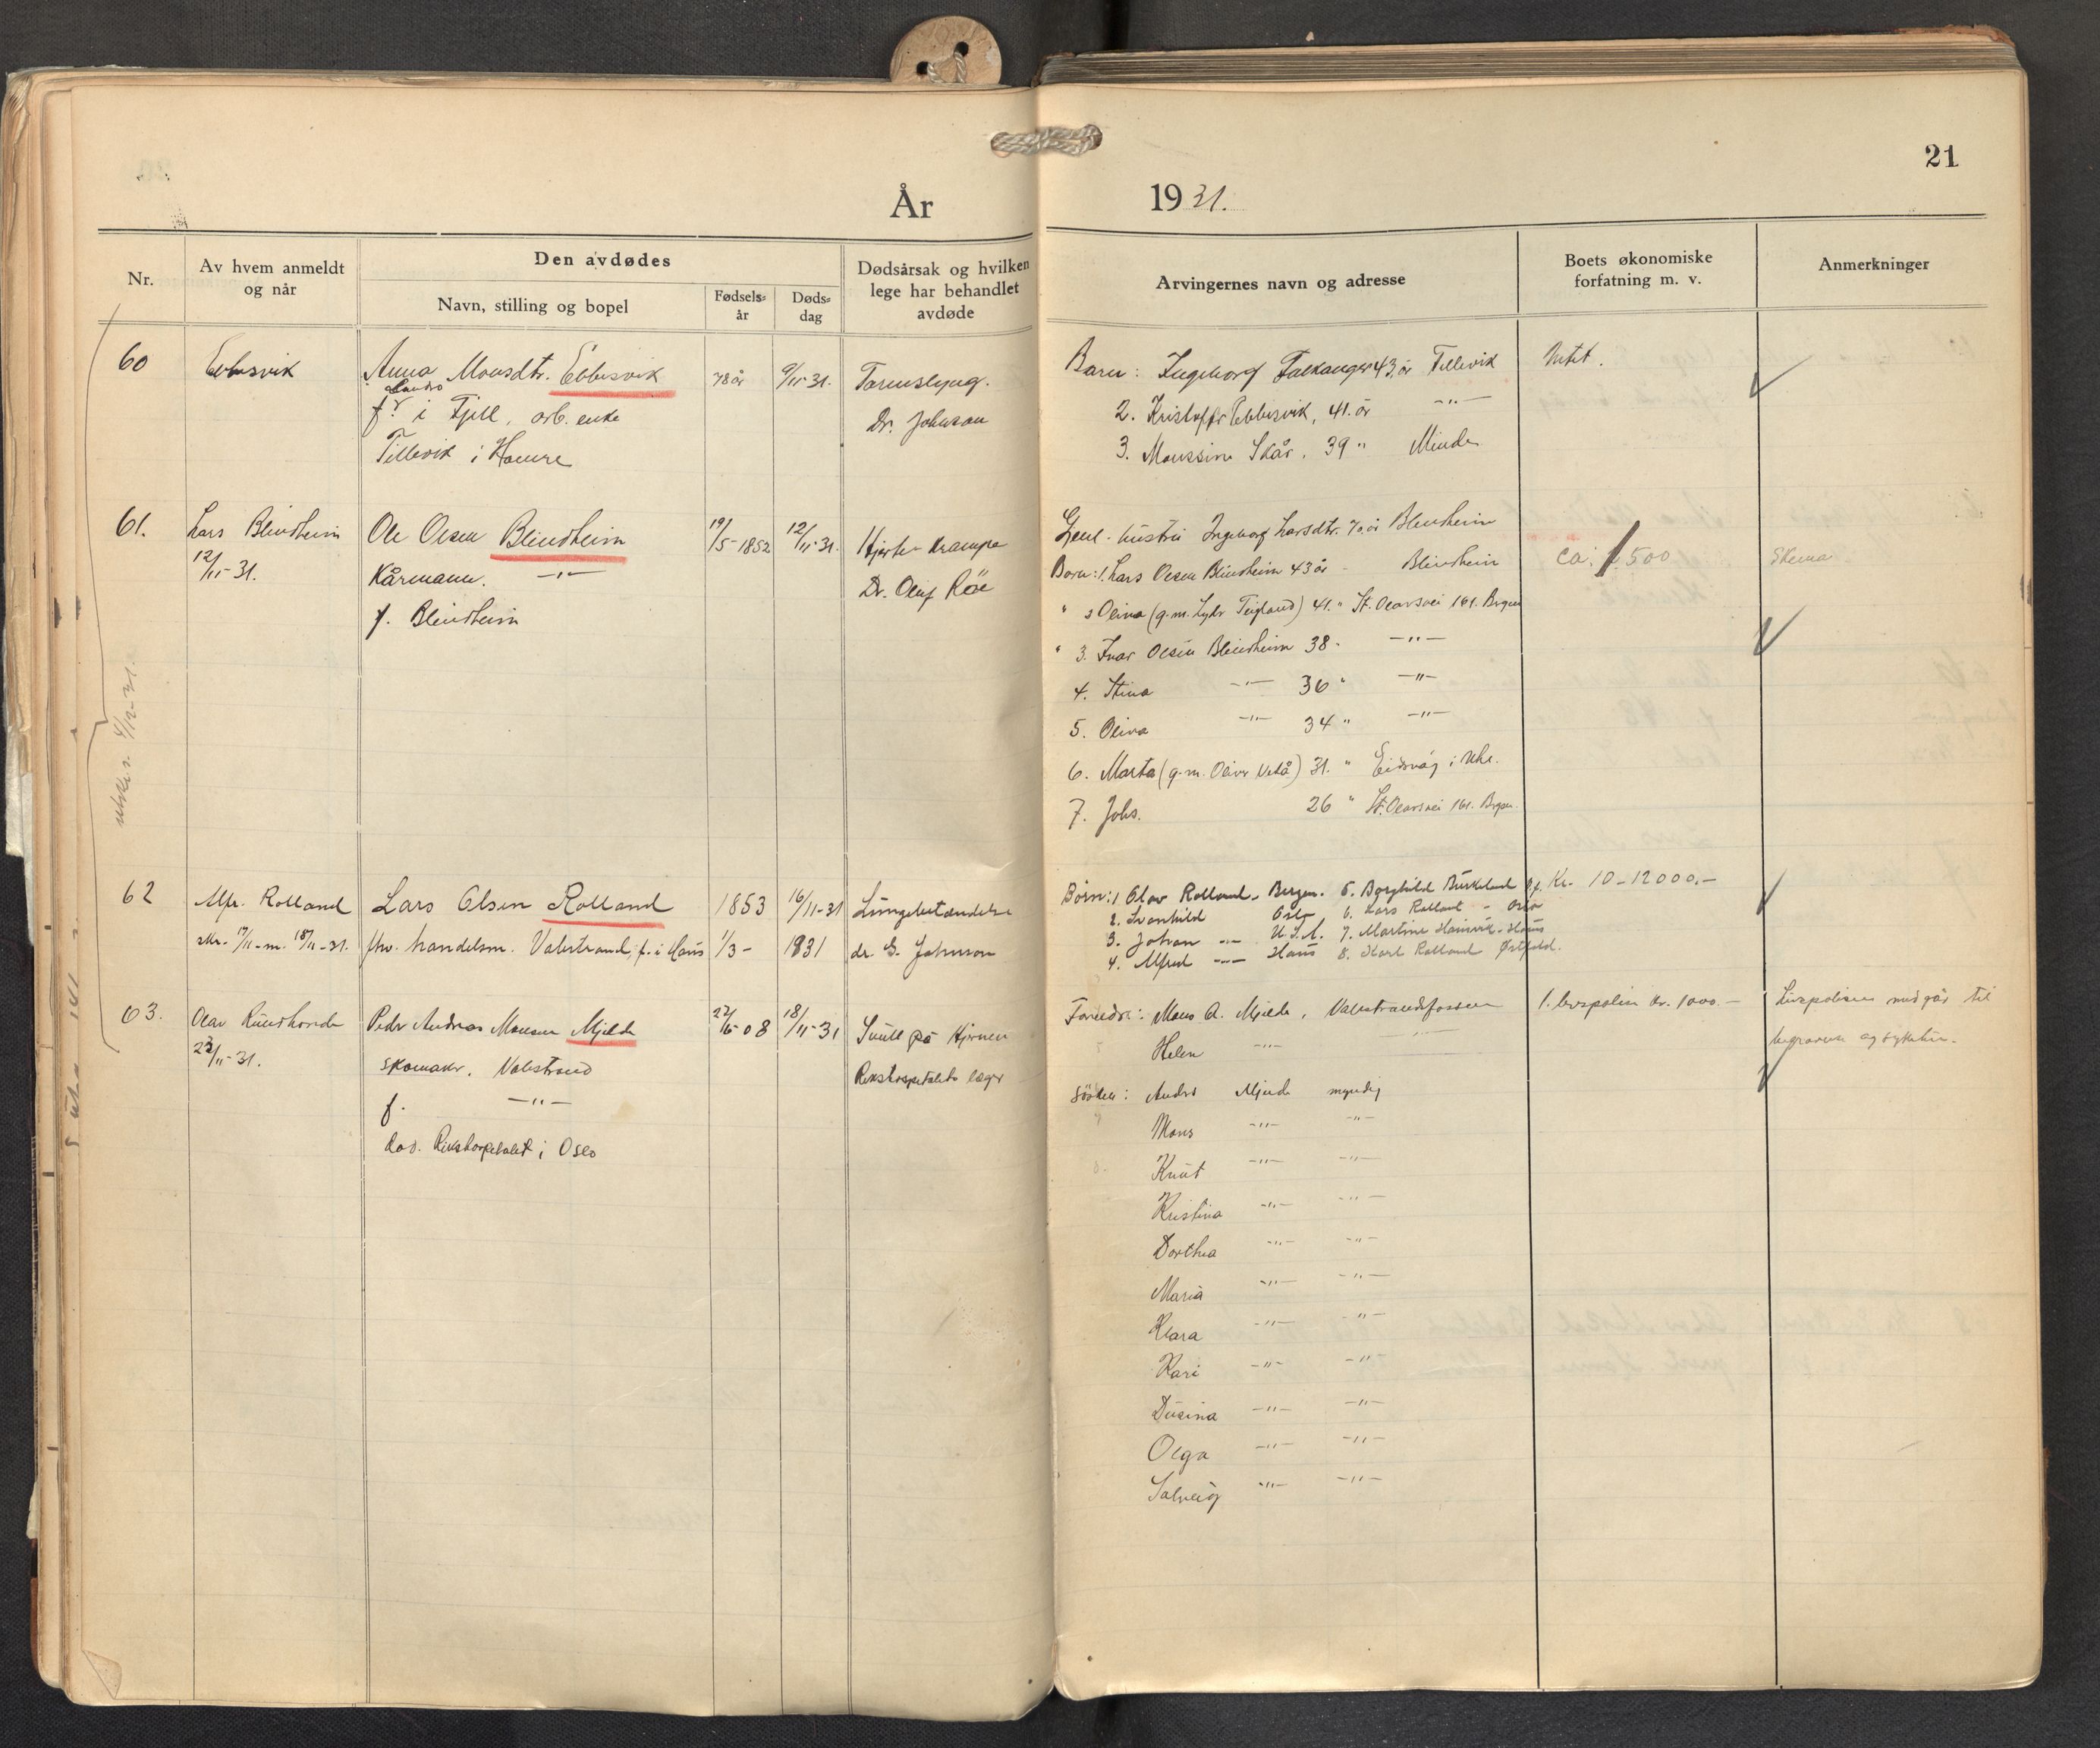 21
År
1931.
Nr.
Av hvem anmeldt
og når
Den avdødes
Navn, stilling og bopel
Fødsels-
år
Døds-
dag
Dødsårsak og hvilken
lege har behandlet
avdøde
Arvingernes navn og adresse
Boets økonomiske
forfatning m. v.
Anmerkninger
60
Ebbesvik
Anna Monsdtr. Ebbesvik
f. i Fjell, arb. enke
Tellevik i Hamre
78 år
9/11-31.
Tarmslyng.
Dr. Johnson
Barn: Ingeborg Falkanger 43 år Tellevik
2. Kristoffer Ebbesvik, 41. år -"-
3. Monssine Skår. 39 " Minde
Intet.
61.
Lars Blindheim
12/11-31.
Ole Olsen Blindheim
Kårmann. -"-
f. Blindheim
19/5-1852
12/11-31.
Hjerte krampe
Dr. Oluf Röe
Gjenl. hustru Ingeborg Larsdtr. 70 år Blindheim
Barn: 1. Lars Olsen Blindheim 43 år - Blindheim
" 2 Olina (g.m. Teigland) 41. " St. Olavsvei 161. Bergen
" 3. Ivar Olsen Blindheim 38 - -"-
4. Stina -"- 36 " -"-
5. Oliva -"- 34 " -"-
6. Marta (g.m. Oliver) 31. " Eidsvåg i
7. Johs. 26 " St. Olavsvei 161. Bergen
ca. 500
Skema
62
Alfr. Rolland
skr. 17/11-m. 18/11-31.
Lars Olsen Rolland
fhv. handelsm. Valestrand, f. i Haus
1853
1/3-
16/11-31
1831
Lungebetændelse
dr. G. Johnson
Børn: 1 Olav Rolland - Bergen. 5. Borghild Birkeland
2. Svanhild Oslo 6. Lars Rolland - Oslo
3. Johan -"- U.S.A. 7. Martine Hamsvik - Haus
4. Alfred -"- Haus 8. Karl Rolland Østfold.
Kr. 10-12000.-
63.
Olav Rundhovde
23/11-31.
Peder Andreas Monsen Mjelde
skomaker. Valestrand
f. -"-
død. Rikshospitalet i Oslo
22/6-08
18/11-31
Svull på hjernen
Rikshospitalets læger
Foreldre: Mons A. Mjelde, Valestrandsfossen
Helen -"-
søsken: Anders Mjelde myndig
Mons -"- -"-
Knut -"- -"-
Kristina -"- -"-
Dorthea -"- -"-
Maria -"- -"-
Klara -"- -"-
Kari -"- -"-
Dusina -"- -"-
Olga -"- -"-
Solveig -"- -"-
1. livspolise kr. 1000.-
Livspolisen medgår til
begravelse og
utskr. 4/12-31.